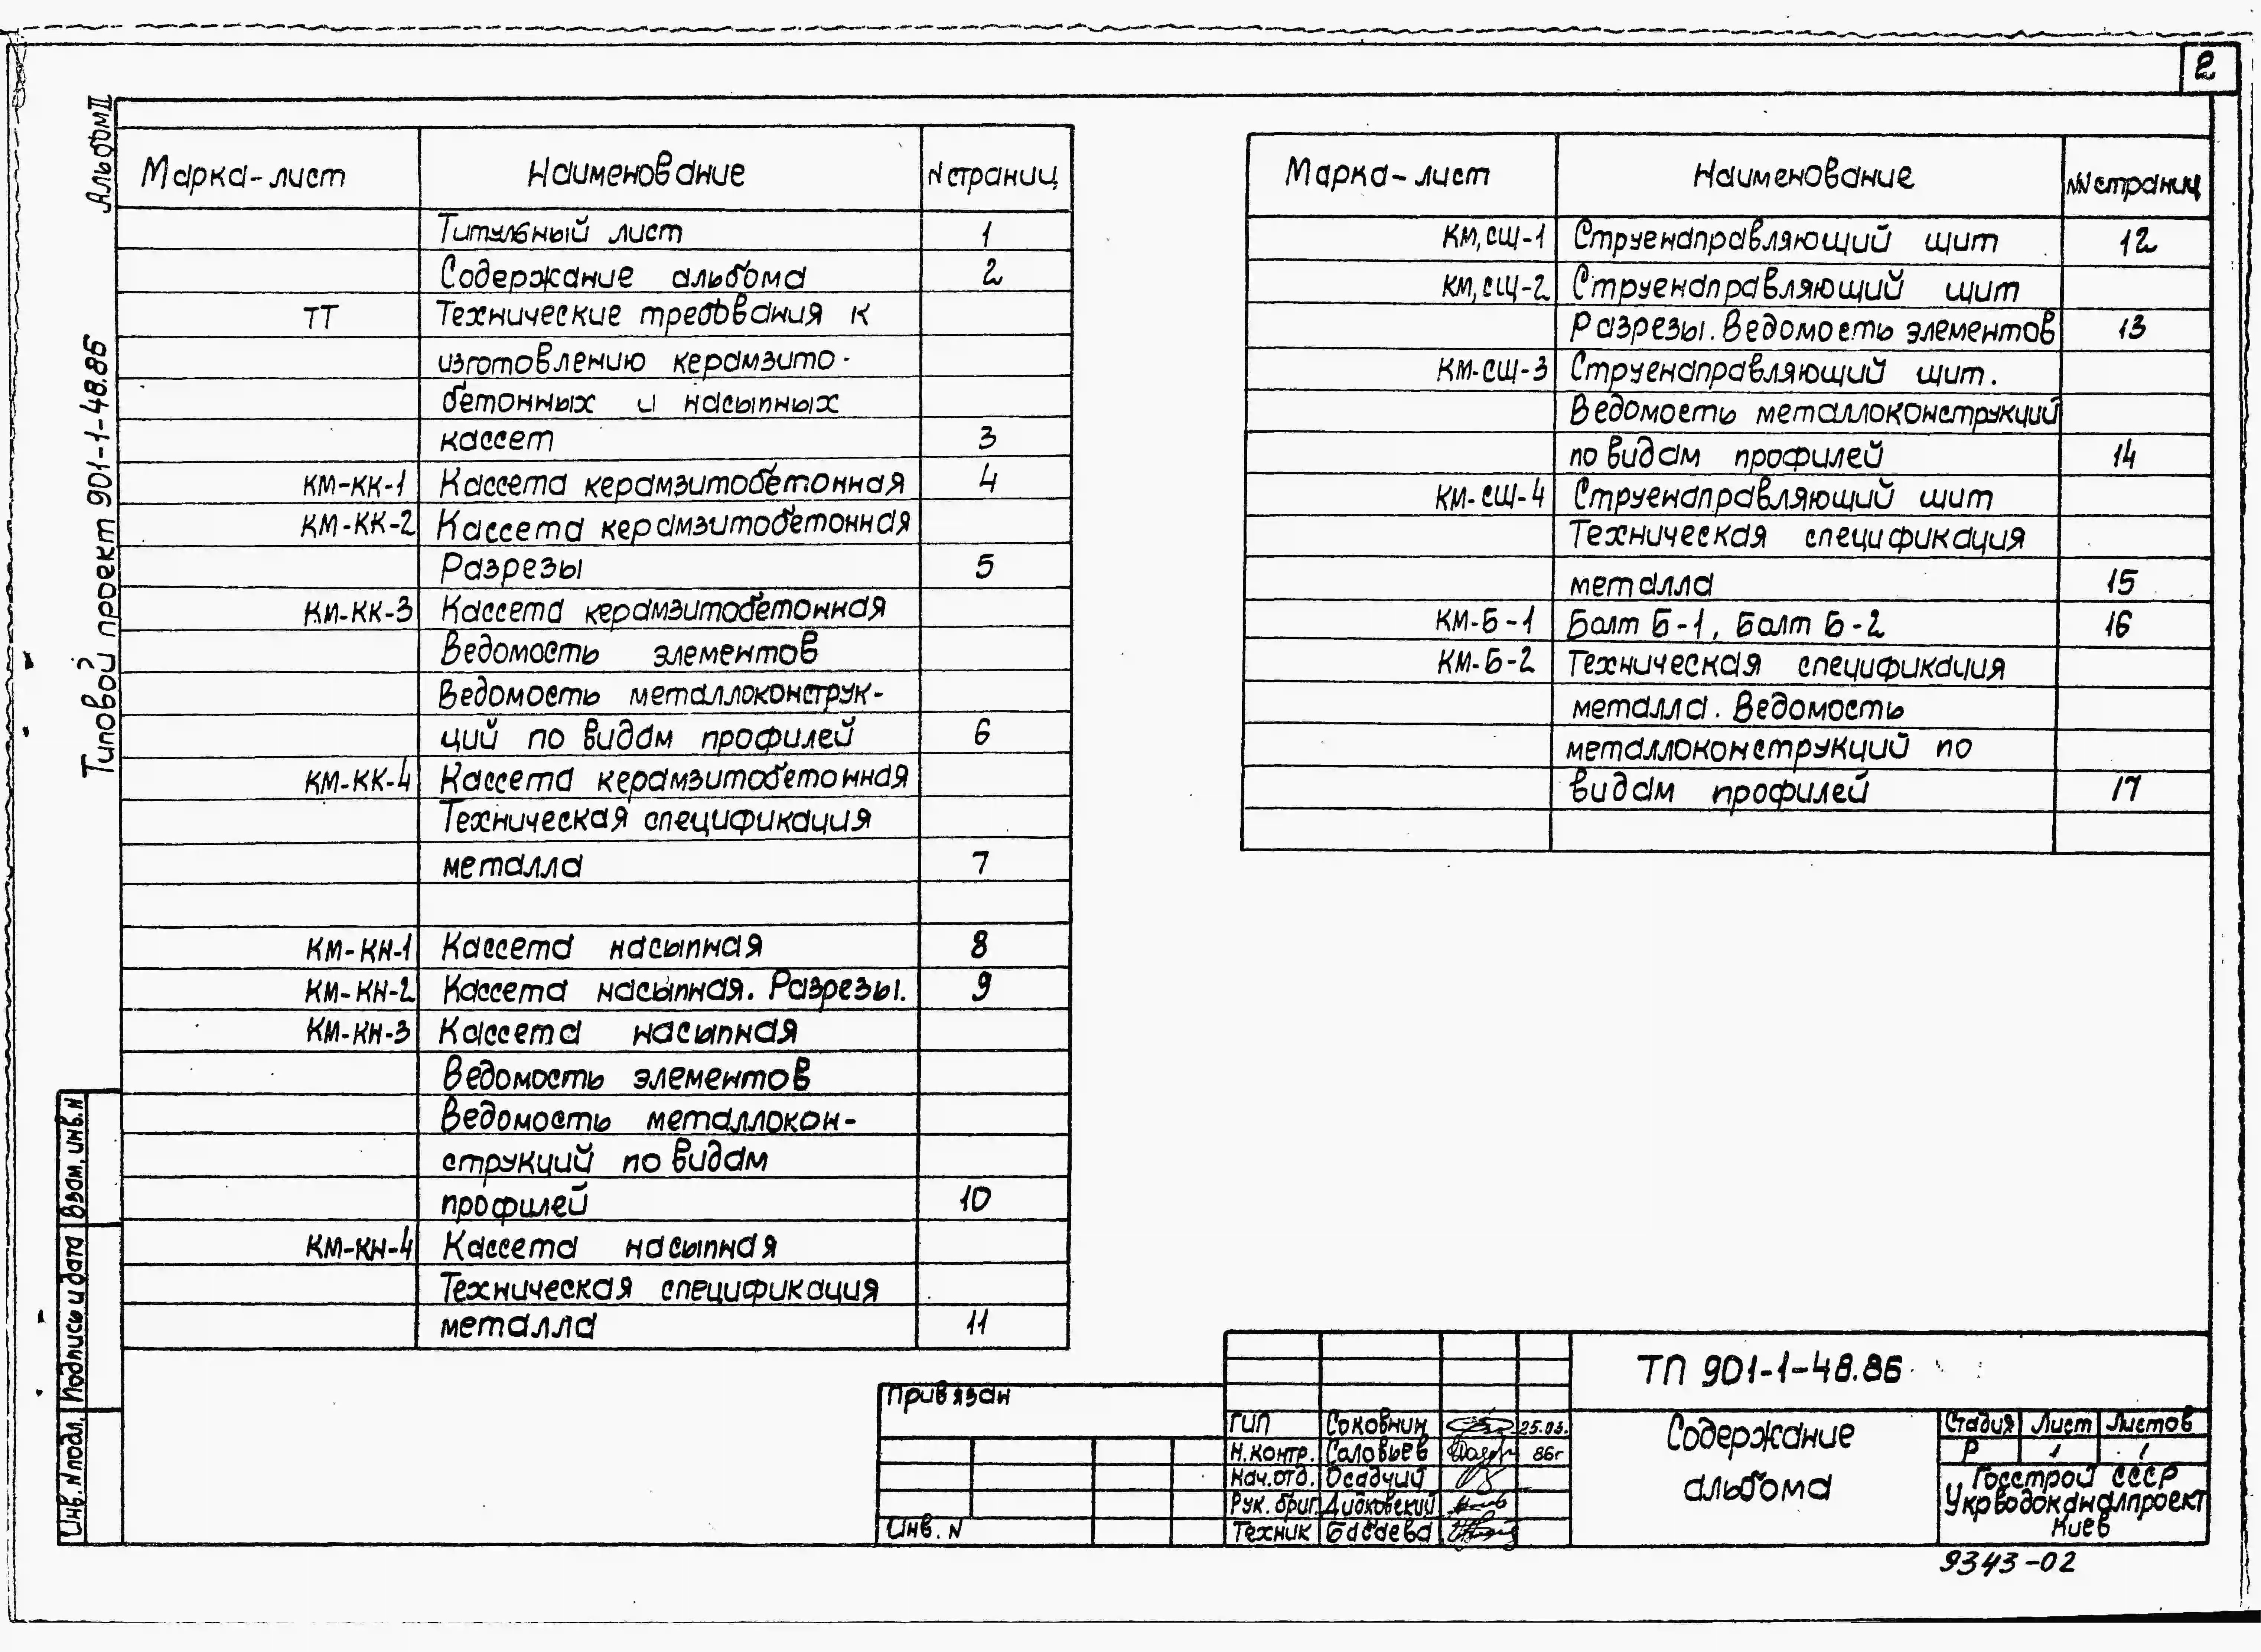 2
Альбом II
Типовой проект 901-1-48.86
Марка-лист Наименование N страниц
Титульный лист 1
Содержание альбома 2
ТТ Технические требования к
изготовлению керамзито-
бетонных и насыпных
кассет 3
КМ-КК-1 Кассета керамзитобетонная 4
КМ-КК-2 Кассета керамзитобетонная
Разрезы 5
КМ-КК-3 Кассета керамзитобетонная
Ведомость элементов
Ведомость металлоконструк-
ций по видам профилей 6
КМ-КК-4 Кассета керамзитобетонная
Техническая спецификация
металла 7
КМ-КН-1 Кассета насыпная 8
КМ-КН-2 Кассета насыпная. Разрезы. 9
КМ-КН-3 Кассета насыпная
Ведомость элементов
Ведомость металлокон-
струкций по видам
профилей 10
КМ-КН-4 Кассета насыпная
Техническая спецификация
металла 11
Марка-лист Наименование NN страниц
КМ,СЩ-1 Струенаправляющий щит 12
КМ,СЩ-2 Струенаправляющий щит
Разрезы. Ведомость элементов 13
КМ-СЩ-3 Струенаправляющий щит.
Ведомость металлоконструкций
по видам профилей 14
КМ-СЩ-4 Струенаправляющий щит
Техническая спецификация
металла 15
КМ-Б-1 Болт Б-1, Болт Б-2 16
КМ-Б-2 Техническая спецификация
металла. Ведомость
металлоконструкций по
видам профилей 17
Взам. инв. N
Подпись и дата
Инв. N подл.
Привязан
Инв. N
ГИП Соковнин 25.03.
Н.контр. Соловьев 86г
Нач.отд. Осадчий
Рук. бриг.
Техник Басаева
ТП 901-1-48.86
Содержание
альбома
Стадия Лист Листов
Р 1 1
Госстрой СССР
Укрводоканалпроект
Киев
9343-02